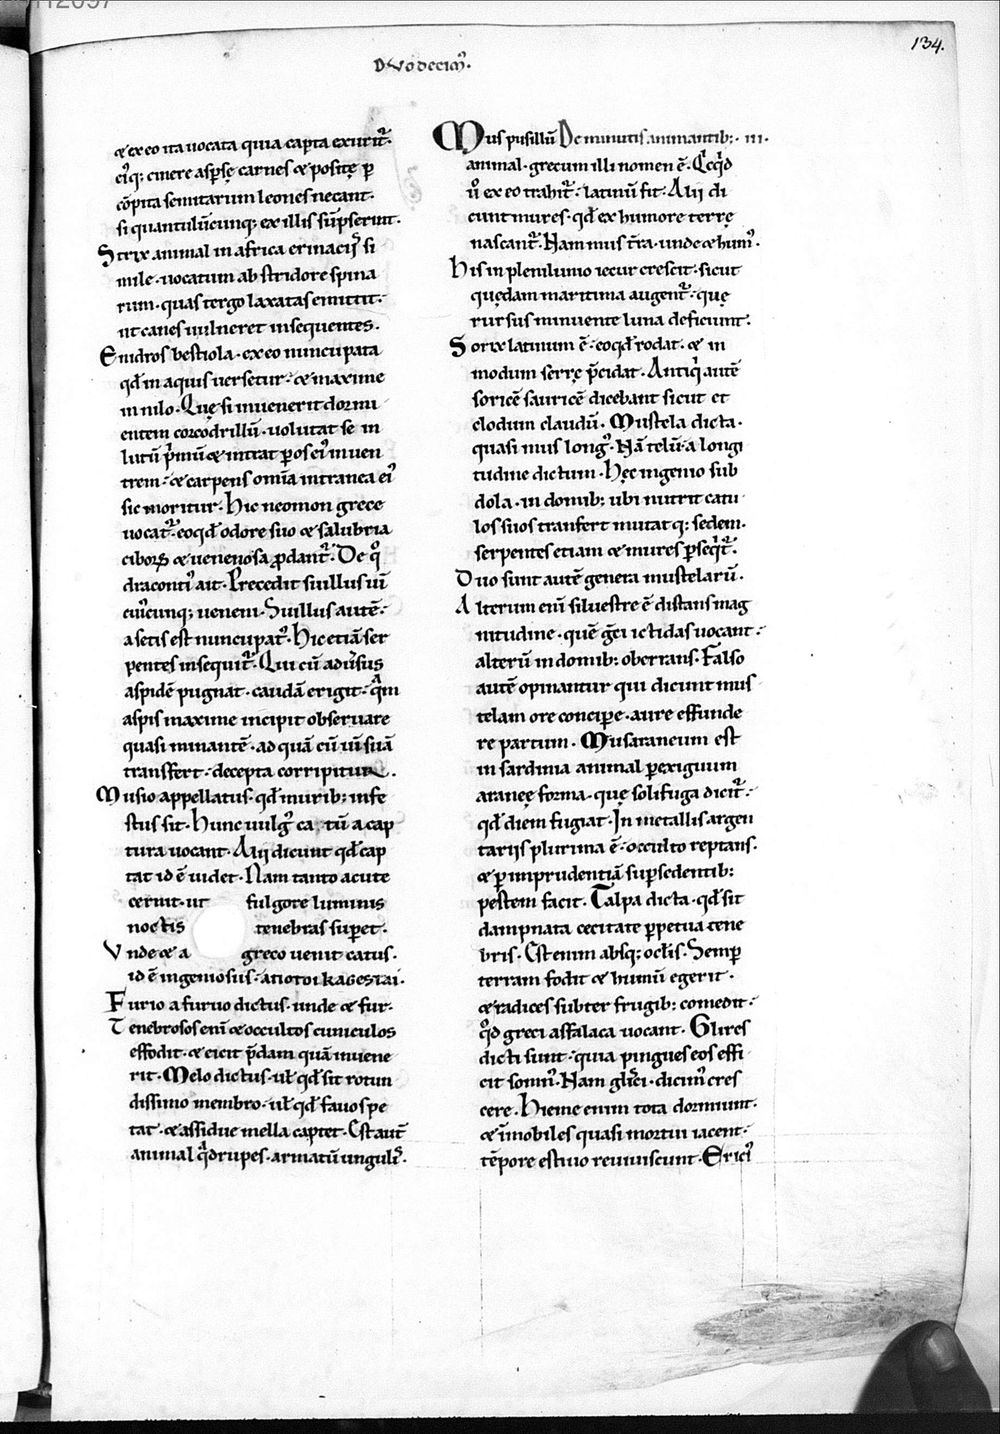 134.
Dvodecim᷒.
& ex eo ita uocata quia capta exurit᷑.
ei᷒q; cinere aspse carnes & posite ꝑ
cōpita semitarum leones necant.
si quantulūcunq; ex illis sūpserint.
Strix animal in africa erinacijs si
mile. uocatum ab stridore spina
rum. quas tergo laxatas emittit.
ut canes uulneret insequentes.
Enidros bestiola. ex eo nuncupata
qđ in aquis uersetur. & maxime
in nilo. Quę si inuenerit dormi
entem corcodrillū. uolutat se in
lutū p̄mū & intrat ꝑ os ei᷒ in uen
trem. & carpens omīa intranea ei᷒
sic moritur. Hic neomon grece
uocat᷑. eo qđ odore suo & salubria
ciboꝝ & uenenosa ꝓdant᷑. De qͦ
draconti᷒ ait. Precedit suillus ui
cuīcunq; ueneni. Suillus autē.
a setis est nuncupat᷒. Hic etiā ser
pentes insequit᷑. Qui cū adūsus
aspidē pugnat. caudā erigit. qͣm
aspis maxime incipit obseruare
quasi minantē. ad quā cū uī suā
transfert. decepta corripitur.
Musio appellatus. qđ murib; infe
stus sit. Hunc uulg᷒ ca tū a cap
tura uocant. Alij dicunt qđ cap
tat id ē uidet. Nam tanto acute
cernit. ut fulgore luminis
noctis tenebras supet.
Vnde & a greco uenit catus.
id ē ingeniosus.
Furio a furuo dictus. unde & fur.
Tenebrosos enī & occultos cuniculos
effodit. & eicit p̄dam quā inuene
rit. Melo dictus. uł qđ sit rotun
dissimo membro. uł qđ fauos pe
tat. & assidue mella captet. Est aut̄
animal qͣdrupes. armatū unguli᷒.
Mus pusillū De minutis animantib;. III.
animal. grecum illi nomen ē. Qcq̇d
ū ex eo trahit᷑. latinū fit. Alij di
cunt mures. qđ ex humore terrę
nascant᷑. Nam mus t̄ra. unde & hum᷒.
His in plenilunio iecur crescit. sicut
quędam maritima augent᷑. quę
rursus minuente luna deficiunt.
Sorix latinum ē. eo qđ rodat. & in
modum serrę p̄cidat. Antiqͥ autē
soricē sauricē dicebant sicut et
clodum claudū. Mustela dicta.
quasi mus long᷒. Nā telū. a longi
tudine dictum. Hęc ingenio sub
dola. in domib; ubi nutrit catu
los suos transfert mutatq; sedem.
serpentes etiam & mures ꝑseqͥt᷑.
Duo sunt autē genera mustelarū.
Alterum enī siluestre ē distans mag
nitudine. quē ḡci ictidas uocant.
alterū in domib; oberrans. Falso
autē opinantur qui dicunt mus
telam ore concipe. aure effunde
re partum. Musaraneum est
in sardinia animal ꝑexiguum
araneę forma. quę solifuga dicit᷑.
qđ diem fugiat. In metallis argen
tarijs plurima ē. occulto reptans.
& ꝑ imprudentiā supsedentib;
pestem facit. Talpa dicta. qđ sit
dampnata cecitate ꝑpetua tene
bris. Est enim absq; ocłis. Semꝑ
terram fodit & humū egerit.
& radices subter frugib; comedit.
qͦd greci asfalaca uocant. Glires
dicti sunt. quia pingues eos effi
cit somn᷒. Nam gliscͥ. dicim᷒ cres
cere. Hieme enim tota dormiunt.
& īmobiles quasi mortui iacent.
tēpore estiuo reuiuiscunt. Erici᷒